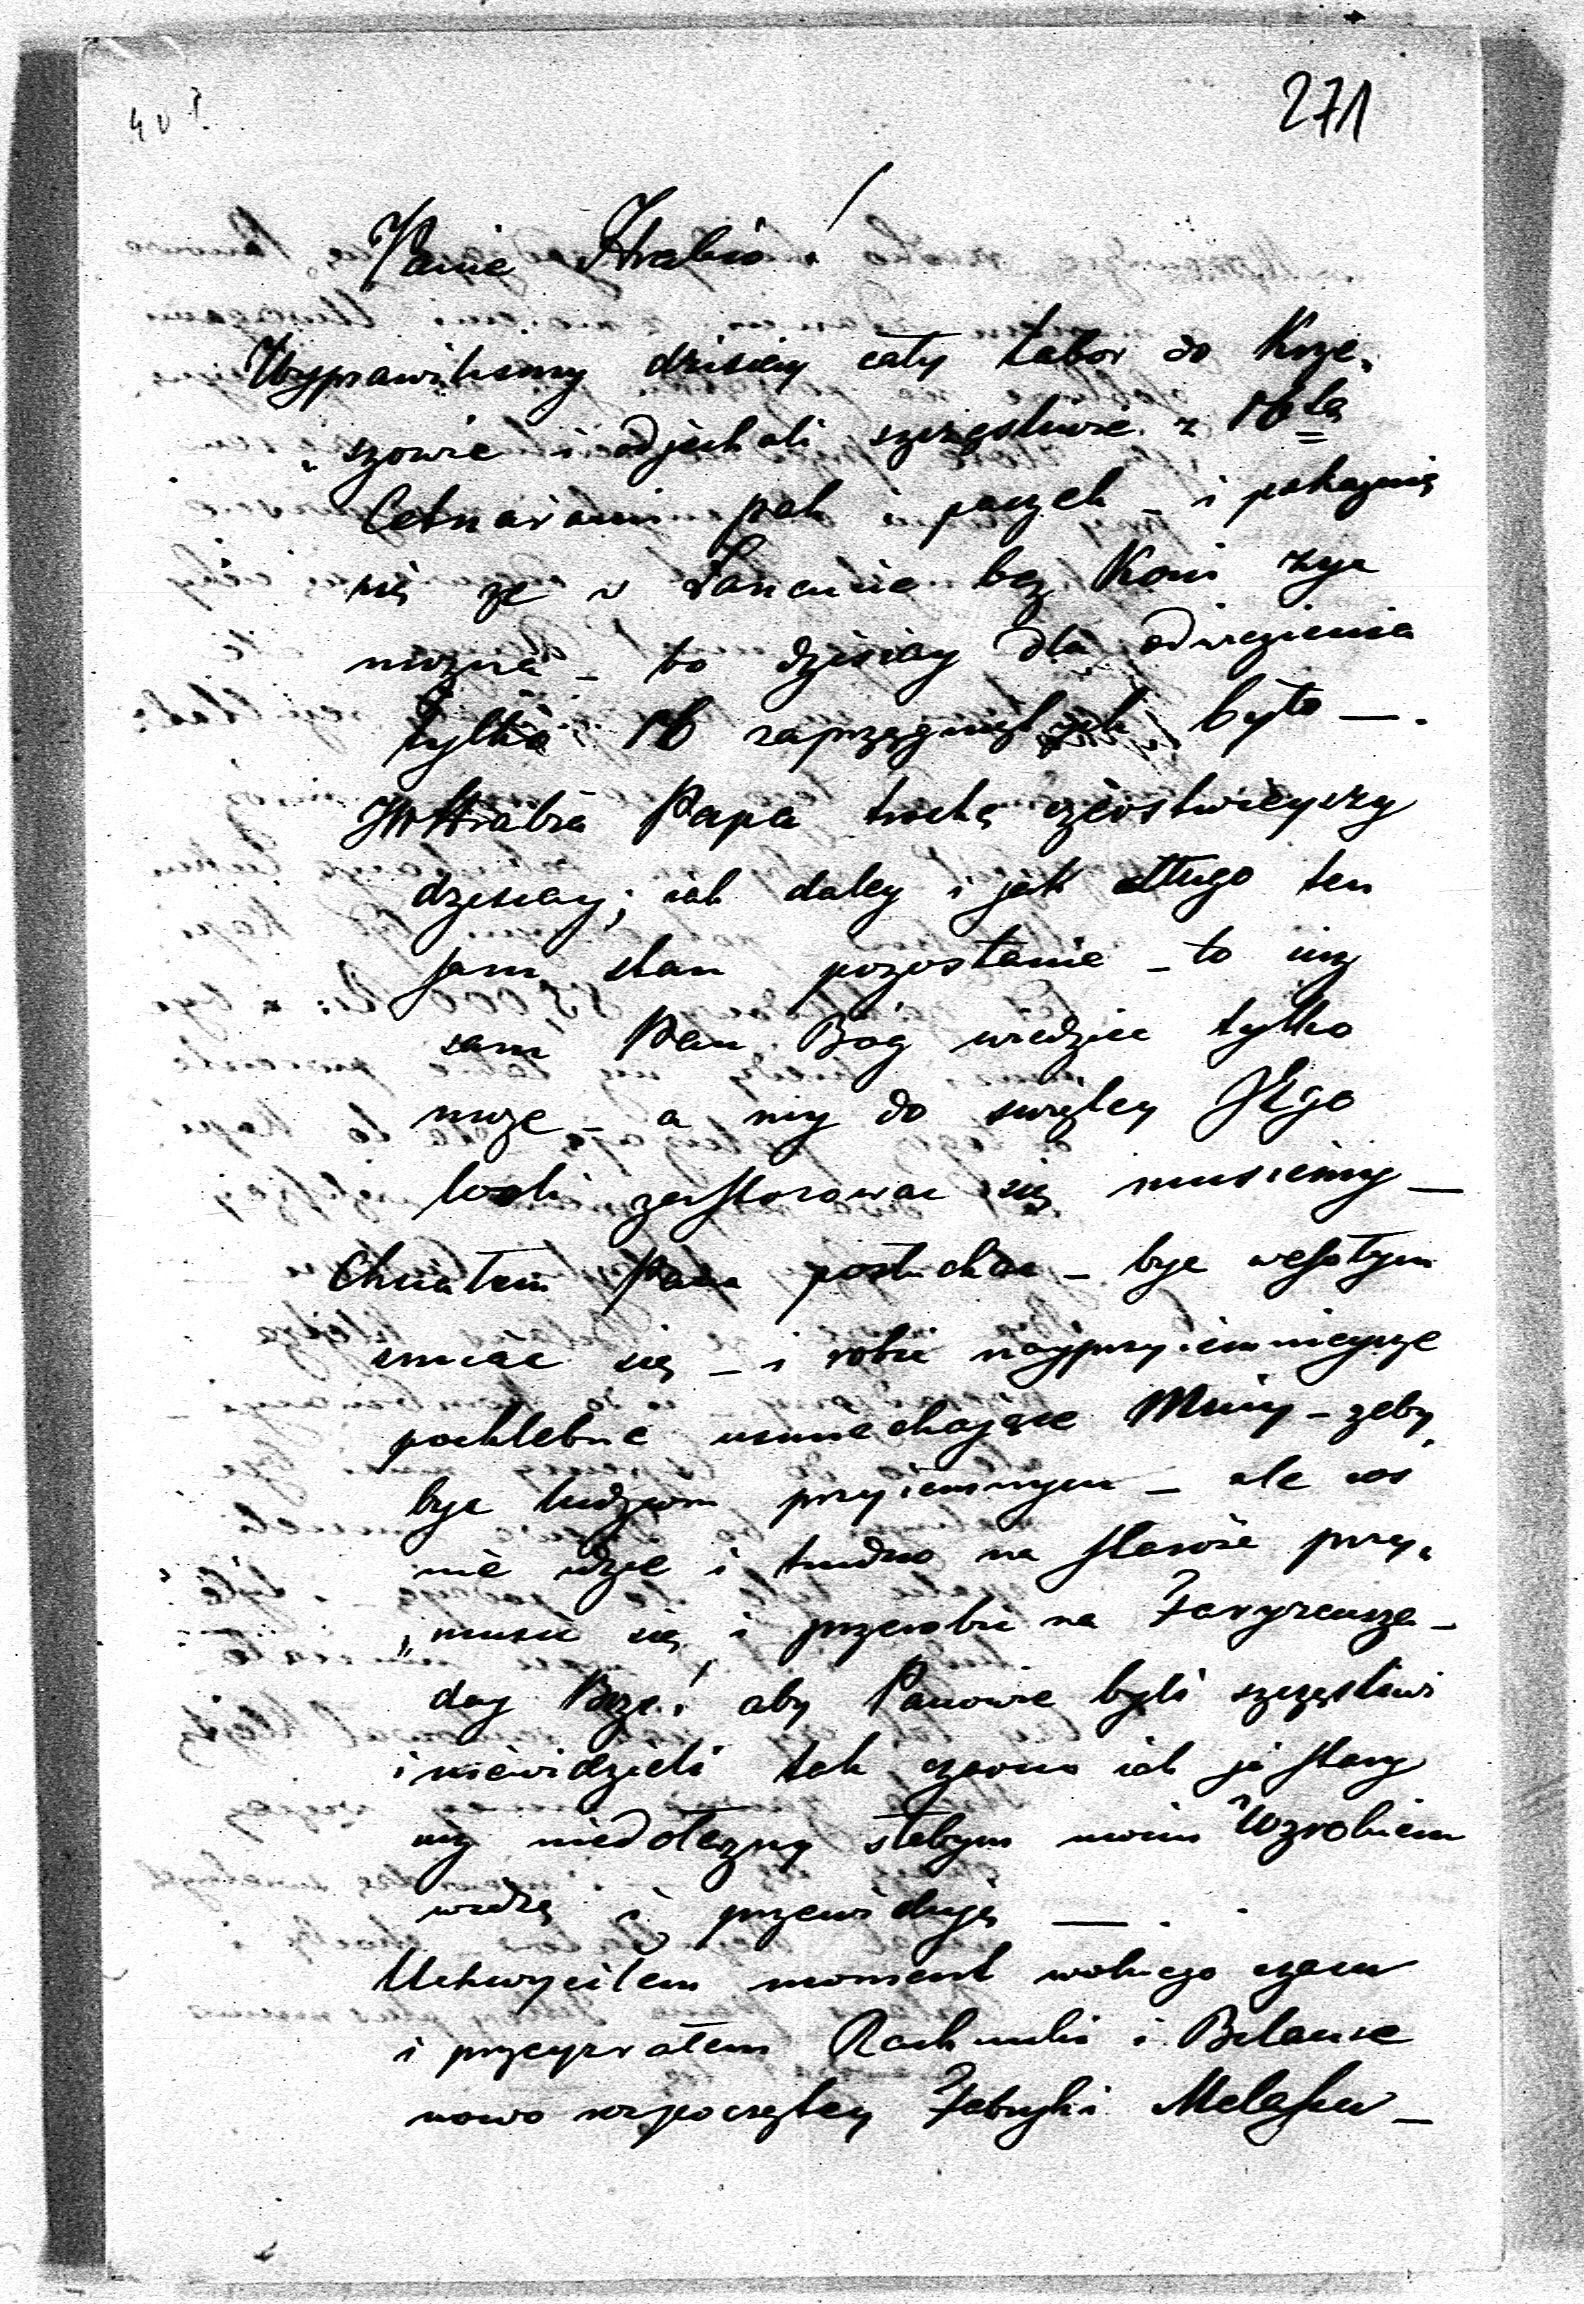 271
Panie Hrabio!
Wyprawilismy dzisiay cały tabor do Krze„
„szowic i odjechali szczęsliwie z 16tą
Cetnarami pak i paczek – i pokazuie
się ze w Łancucie bez Koni zyc
mozna – to dzisiay dla odwiezienia
tylko 16 zaprzęgniętych było —.
JW Hrabia Papa trochę czerstwieyszy
dzisiay; iak daley i jak długo ten
sam stan pozostanie – to iuz
sam Pan Bóg wiedziec tylko
moze – a my do swiętey Jego
woli zastosowac się musiemy —
Chciałem Pana posłuchac – byc wesołym
smiac się – i robic nayprzyiemnieysze
pochlebne usmiechaiące Miny – zeby
byc ludziom przyiemnym – ale cos
nie idzie i trudno na starosc przy„
„music się i przerobic na Faryzeusza –
day Boze! aby Panowie byli szczęsliwi
i niewidzieli tak czarno iak ja stary
niedołęzny słabym moim Wzrokiem
widzę i przewiduię —.
Uchwyciłem moment wolnego czasu
i przeyrzałem Rachunki i Belance
nowo rozpoczętey Fabryki Melassu –